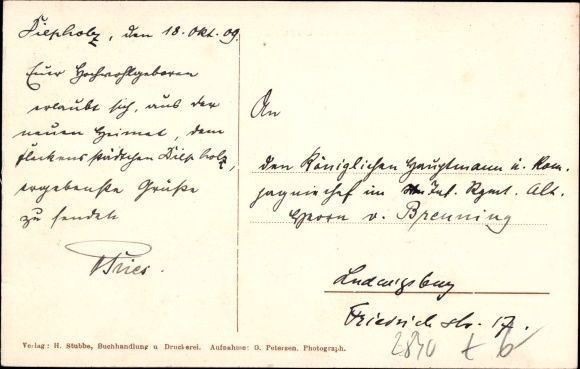 Diepholz, den 18. Okt. 09.
Euer Hochwohlgeboren
erlaubt sich, aus der
neuen Heimat, dem
Fleckenstädtchen Diepholz,
ergebenste Grüße
zu senden
Fries.
An
den Königlichen Hauptmann u. Kom-
pagniechef im Inf. Rgmt. Alt.
Herrn v. Brenning
Ludwigsburg
Friedrich str. 17.
2840 t b
Verlag: H. Stubbe, Buchhandlung u Druckerei. Aufnahme: O. Petersen. Photograph.